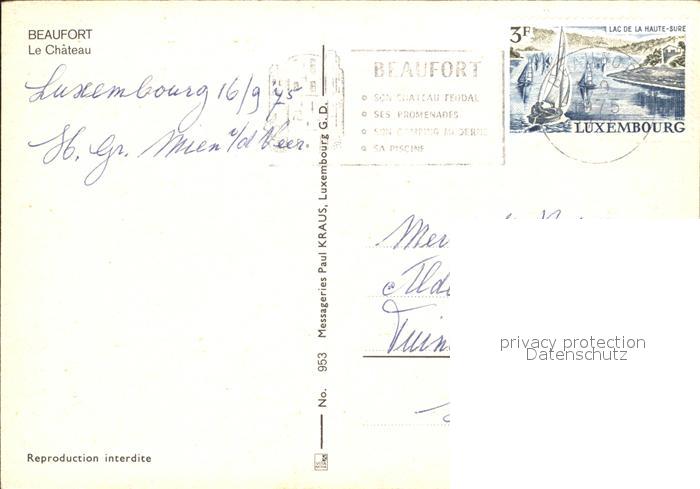 BEAUFORT
Le Château
Luxembourg 16/9 75
H. Gr. Mien v/d Veer.
BEAUFORT
SON CHATEAU FEODAL
SES PROMENADES
SON CAMPING MODERNE
SA PISCINE
3F
LAC DE LA HAUTE-SURE
LUXEMBOURG
No. 953 Messageries Paul KRAUS, Luxembourg G. D.
privacy protection
Datenschutz
Reproduction interdite